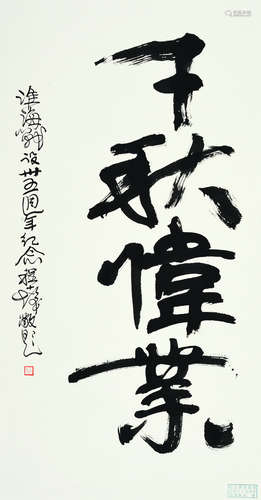 千秋偉業
淮海戰役卅五周年纪念 程十髮敬題